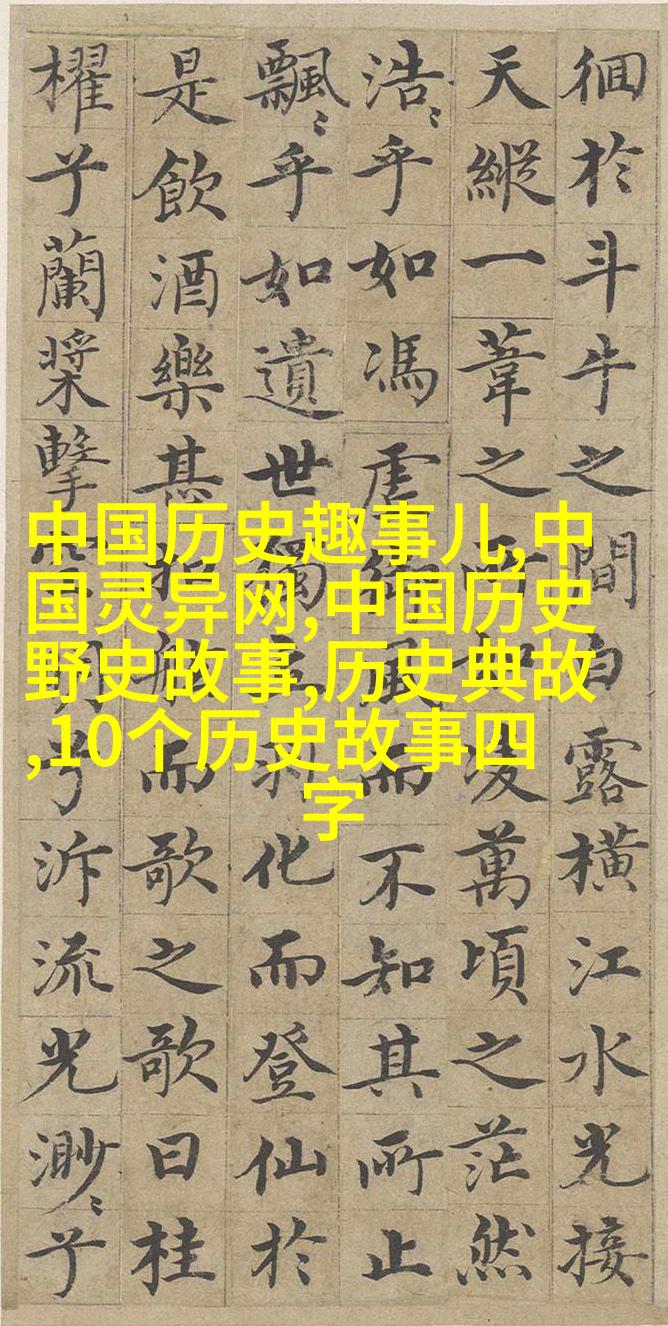 徊於斗牛之間白露橫江水光接
天縱一葦之所如凌萬頃之茫然
浩〻乎如馮虛御風而不知其所止
飄〻乎如遺世獨立羽化而登仙於
是飲酒樂甚扣舷而歌之歌曰桂
櫂兮蘭槳擊空明兮泝流光渺〻兮
中国历史趣事儿,中
国灵异网,中国历史
野史故事,历史典故
,10个历史故事四
字